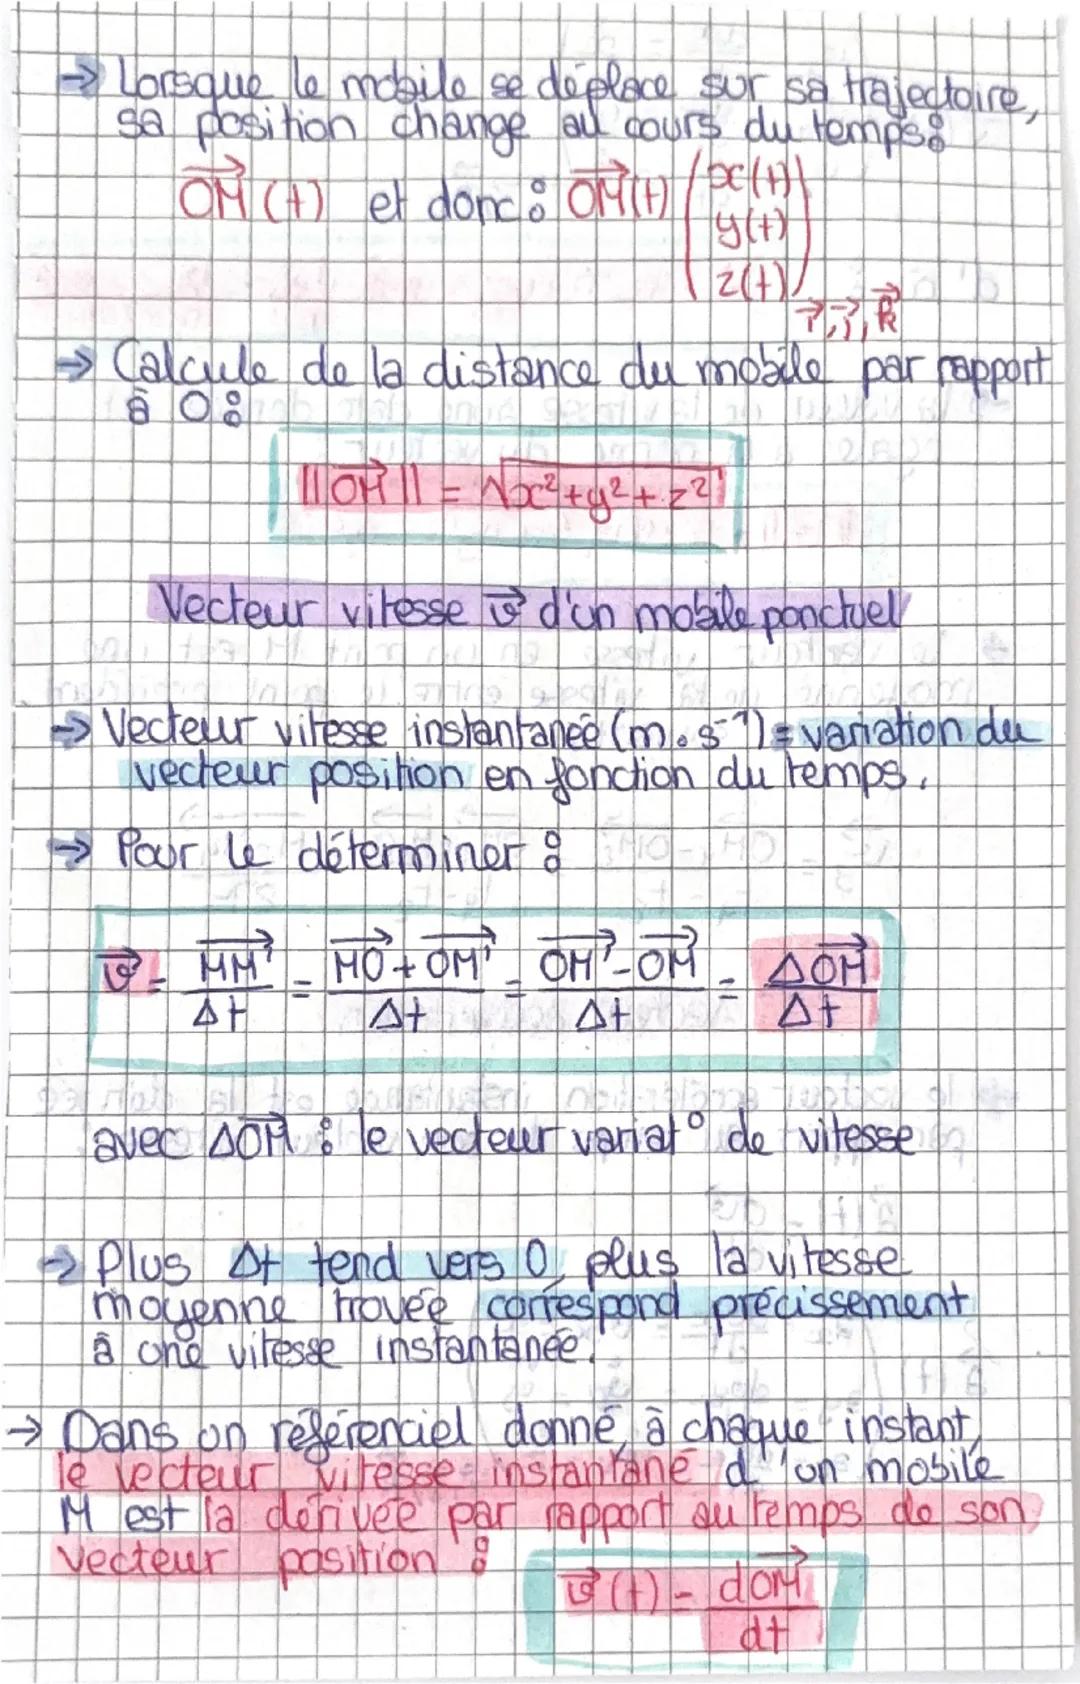 → Lorsque le mobile se déplace sur sa trajectoire,
sa position change au cours du temps :
OM⃗ (t) et donc : OM⃗(t) ( x(t)
y(t)
z(t) )
i⃗, j⃗, k⃗
→ Calcule de la distance du mobile par rapport
à O :
||OM⃗|| = √x²+y²+z²
Vecteur vitesse v⃗ d'un mobile ponctuel
→ Vecteur vitesse instantanée (m.s⁻¹) = variation du
vecteur position en fonction du temps.
→ Pour le déterminer :
v⃗ = MM'⃗/Δt = (MO⃗ + OM'⃗)/Δt = (OM'⃗ - OM⃗)/Δt = ΔOM⃗/Δt
avec ΔOM⃗ : le vecteur variat° de vitesse
→ Plus Δt tend vers 0, plus la vitesse
moyenne trouvée correspond précissement
à une vitesse instantanée.
→ Dans un référenciel donné, à chaque instant,
le vecteur vitesse instantané d'un mobile
M est la dérivée par rapport au temps de son
vecteur position :
v⃗(t) = dOM⃗/dt